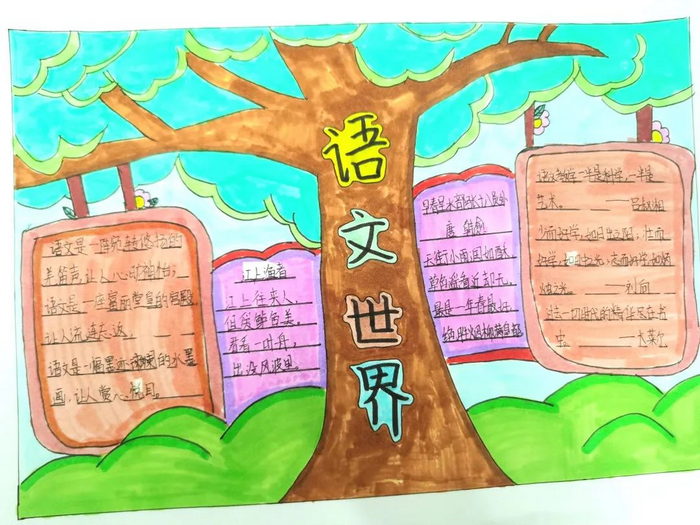 语文世界
语文是一阵宛转悠扬的
养笛声,让人心动相怡;
语文是一座富丽堂皇的宫殿
让人流连忘返。
语文是一幅墨迹的水墨
画,让人赏心悦目。
江上渔者
江上往来人,
但爱鲈鱼美。
君看一叶舟,
出没风波里。
早春呈水部张十八员外
唐 韩愈
天街小雨润如酥,
草色遥看近却无。
最是一年春好
绝胜烟柳满皇都
语文教学一半是科学,一半是
艺术。——吕叔湘
少而好学,如日出之阳,壮而
好学,如日中之光,老而好学,如炳
烛之光。——刘向
当一切时代的精华尽在书
中。——卡莱尔